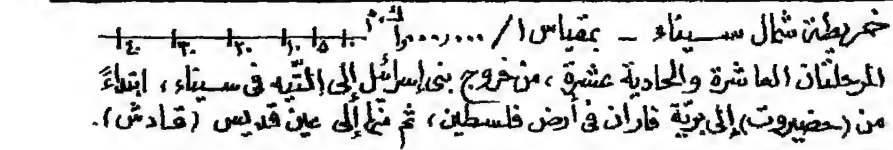 خريطة شمال سيناء - بمقياس ١/١٠٠٠٠٠٠ ك.م ٠ ٥ ١٠ ٢٠ ٣٠ ٤٠
المرحلتان العاشرة والحادية عشرة، من خروج بني إسرائيل إلى التّيه في سيناء، ابتداءً
من (حضيروت) إلى بريّة فاران في أرض فلسطين، ثم منها إلى عين قديس (قادش).